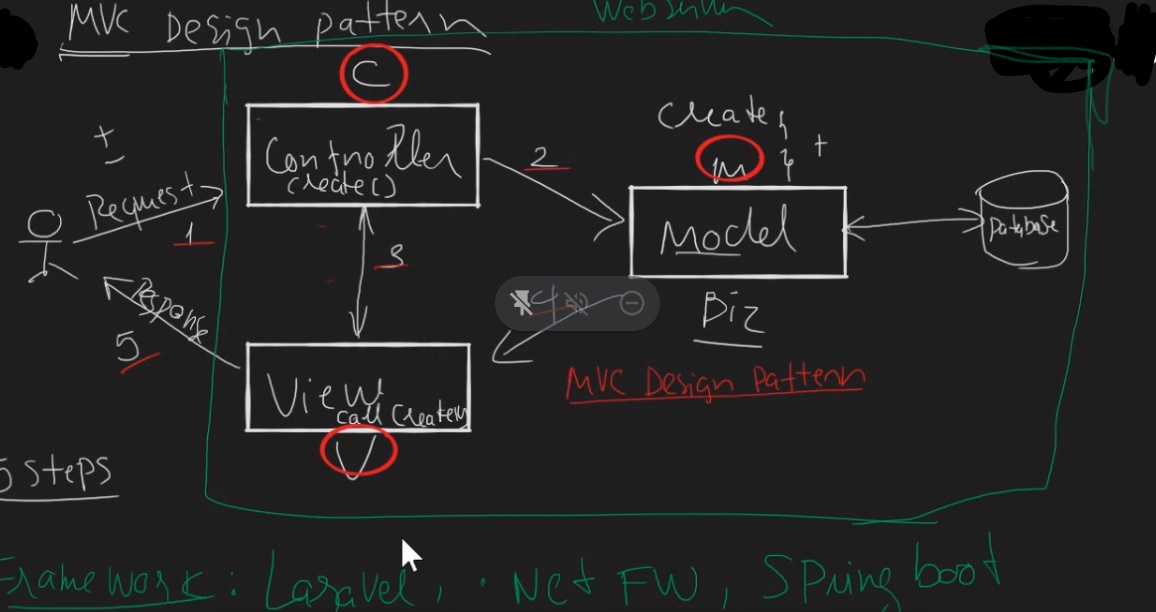 MVC Design pattern
Web Server
C
Controller
(create()
Create
m
+
±
Request
1
2
Model
Database
3
4
Biz
Response
5
View
call Create
V
MVC Design Pattern
5 Steps
Framework: Laravel, .Net FW, Spring boot